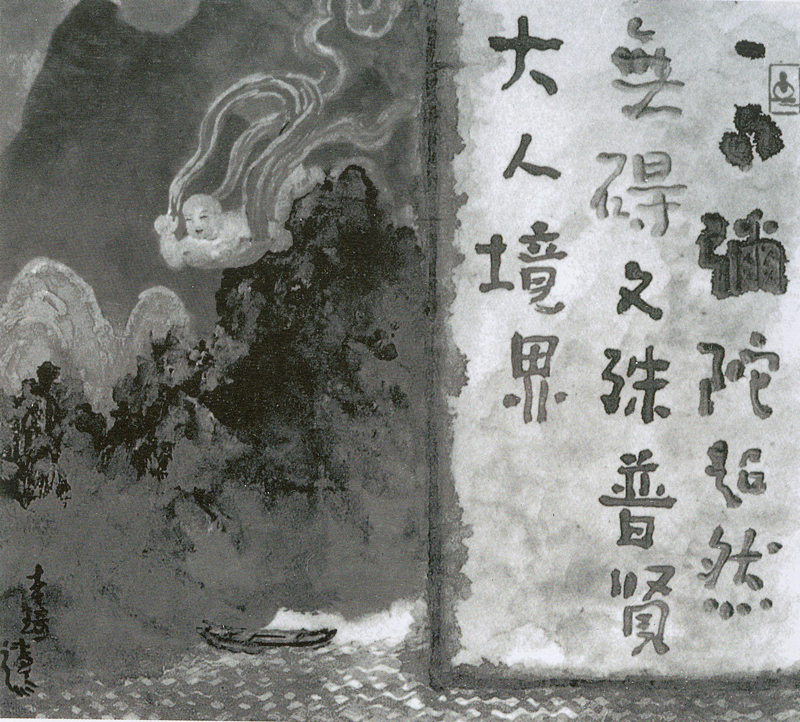 彌陀然
無碍文殊普賢
大人境界